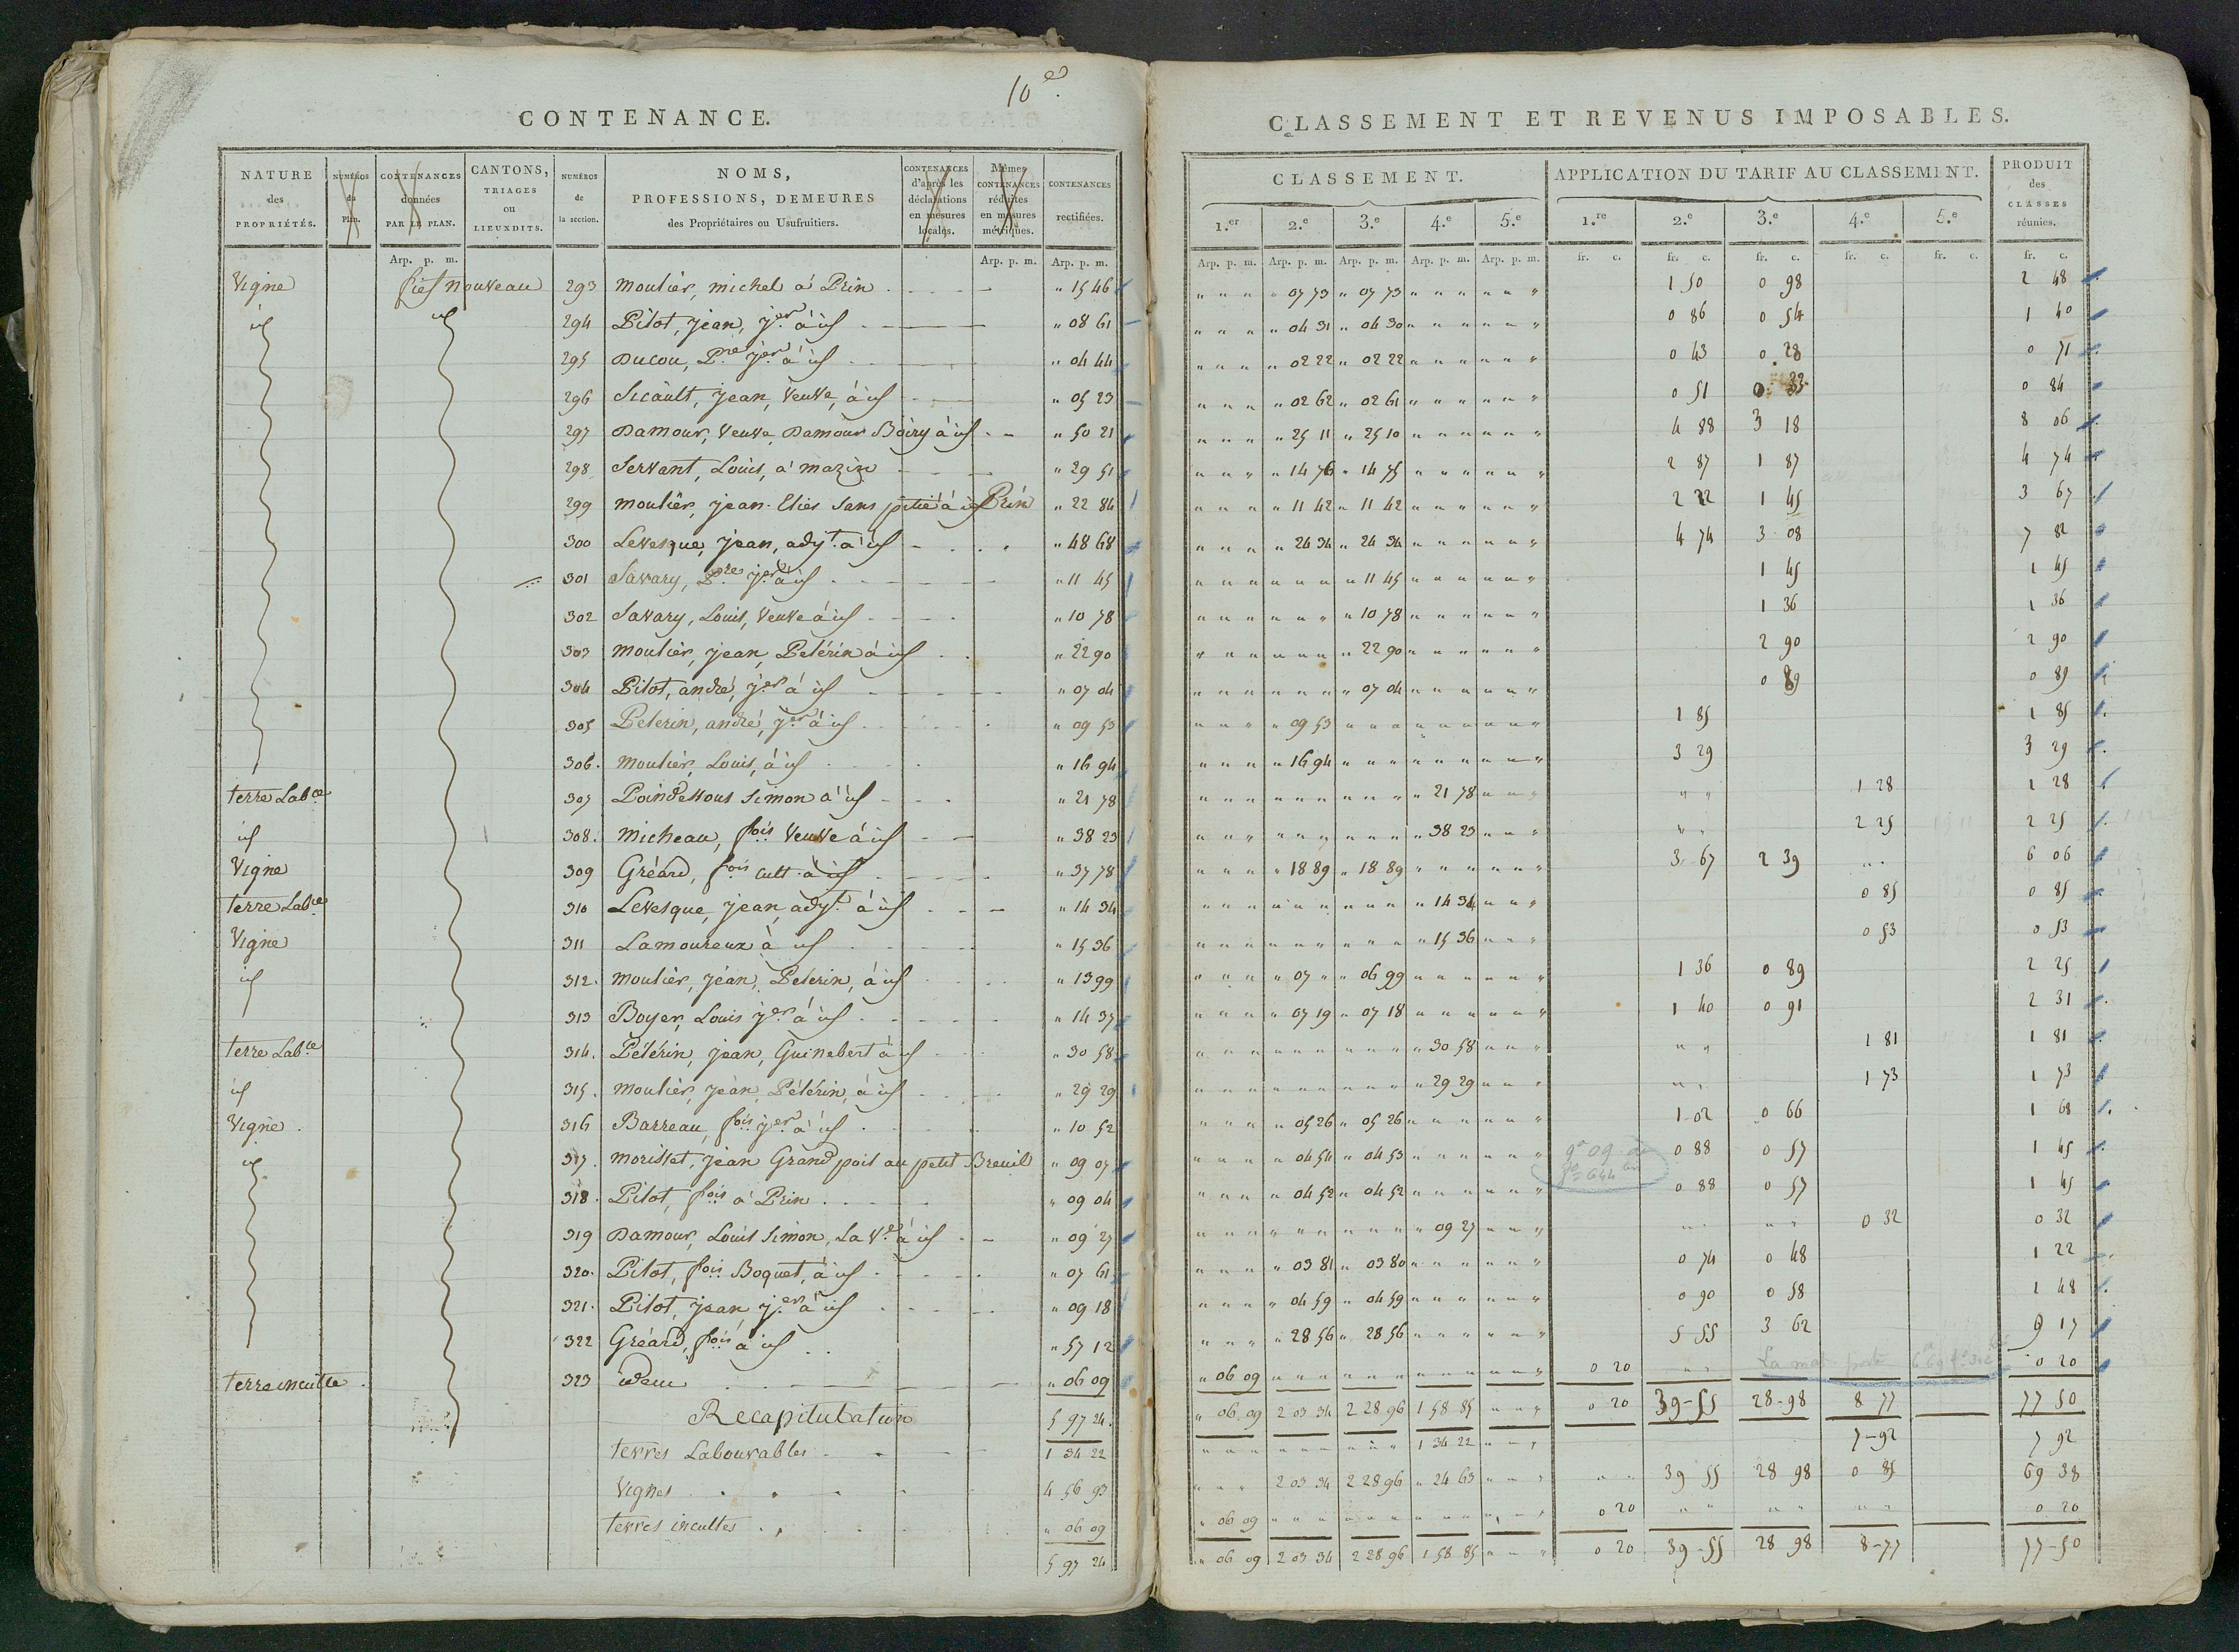 10e.
CONTENANCE.
NATURE des PROPRIÉTÉS. NUMÉROS du Plan. CONTENANCES données PAR LE PLAN. CANTONS, TRIAGES ou LIEUXDITS. NUMÉROS de la section. NOMS, PROFESSIONS, DEMEURES des Propriétaires ou Usufruitiers. CONTENANCES d'après les déclarations en mesures locales. Mêmes CONTENANCES réduites en mesures métriques. CONTENANCES rectifiées.
Arp. p. m. Arp. p. m. Arp. p. m.
Vigne fief nouveau 293 Moulier, michel à Prin " 15 46
id id 294 Pilot, jean, jer à id " 08 61
295 Ducou, Pre jer à id " 04 44
296 Sicault, jean, Veuve, à id " 05 23
297 Damour, Veuve, Damour Boiry à id " 50 21
298 Servant, Louis, a mazin " 29 51
299 Moulier, jean Elies Sans pitié à id Prin " 22 84
300 Levesque, jean, adjt. à id " 48 68
301 Savary, Pre jer à id " 11 45
302 Savary, Louis, Veuve à id " 10 78
303 Moulier, jean, Pelérin à id " 22 90
304 Pilot, andré, jer à id " 07 04
305 Pelerin, andré, jer à id " 09 53
306. Moulier, Louis, à id " 16 94
terre Labce 307 Poindessous Simon à id " 21 78
id 308. Micheau, fois Veuve à id " 38 23
Vigne 309 Gréard, fois cult. à id " 37 78
terre Labce 310 Levesque, jean, adjt. à id " 14 34
Vigne 311 Lamoureux à id " 15 36
id 312. Moulier, jean, Pelerin, à id " 13 99
313 Boyer, Louis jer à id " 14 37
terre Labce 314. Pélérin, jean, Guinebert à id " 30 58
id 315. Moulier, jean, Pélérin, à id " 29 29
Vigne 316 Barreau, fois jer à id " 10 52
id 317. Morisset, jean Grand pois au petit Breuil " 09 07
318. Pilot, fois à Prin " 09 04
319 Damour, Louis Simon, La Ve à id " 09 27
320. Pilot, fois Boquet, à id " 07 61
321. Pilot, jean jer à id " 09 18
322 Gréard, fois à id " 57 12
terre inculte 323 idem " 06 09
Recapitulation 5 97 24.
terres Labourables 1 34 22
Vignes 4 56 93
terres incultes " 06 09
5 97 24
CLASSEMENT ET REVENUS IMPOSABLES.
CLASSEMENT. APPLICATION DU TARIF AU CLASSEMENT. PRODUIT des CLASSES réunies.
1.er 2.e 3.e 4.e 5.e 1.re 2.e 3.e 4.e 5.e
Arp. p. m. Arp. p. m. Arp. p. m. Arp. p. m. Arp. p. m. fr. c. fr. c. fr. c. fr. c. fr. c. fr. c.
" 07 73 " 07 73 1 50 0 98 2 48
" 04 31 " 04 30 0 86 0 54 1 40
" 02 22 " 02 22 0 43 0 28 0 71
" 02 62 " 02 61 0 51 0 33 0 84
" 25 11 " 25 10 4 88 3 18 8 06
" 14 76 " 14 75 2 87 1 87 4 74
" 11 42 " 11 42 2 22 1 45 3 67
" 24 34 " 24 34 4 74 3 08 7 82
" 11 45 1 45 1 45
" 10 78 1 36 1 36
" 22 90 2 90 2 90
" 07 04 0 89 0 89
" 09 53 1 85 1 85
" 16 94 3 29 3 29
" 21 78 " " 1 28 1 28
" 38 23 " " 2 25 2 25
" 18 89 " 18 89 3 67 2 39 " " 6 06
" 14 34 0 85 0 85
" 15 36 0 53 0 53
" 07 " " 06 99 1 36 0 89 2 25
" 07 19 " 07 18 1 40 0 91 2 31
" 30 58 " " 1 81 1 81
" 29 29 " " 1 73 1 73
" 05 26 " 05 26 1 02 0 66 1 68
" 04 54 " 04 53 9a 09 0 88 0 57 1 45
" 04 52 " 04 52 0 88 0 57 1 45
" 09 27 " " " " 0 32 0 32
" 03 81 " 03 80 0 74 0 48 1 22
" 04 59 " 04 59 0 90 0 58 1 48
" 28 56 " 28 56 5 55 3 62 9 17
" 06 09 0 20 " " La mat. porte 0 20
" 06 09 2 03 34 2 28 96 1 58 85 " " " 0 20 39-55 28-98 8 77 77 50
1 34 22 " " " 7-92 7 92
2 03 34 2 28 96 " 24 63 " " " " " 39 55 28 98 0 85 69 38
" 06 09 0 20 " " " " " " 0 20
" 06 09 2 03 34 2 28 96 1 58 85 " " " 0 20 39-55 28 98 8-77 77-50